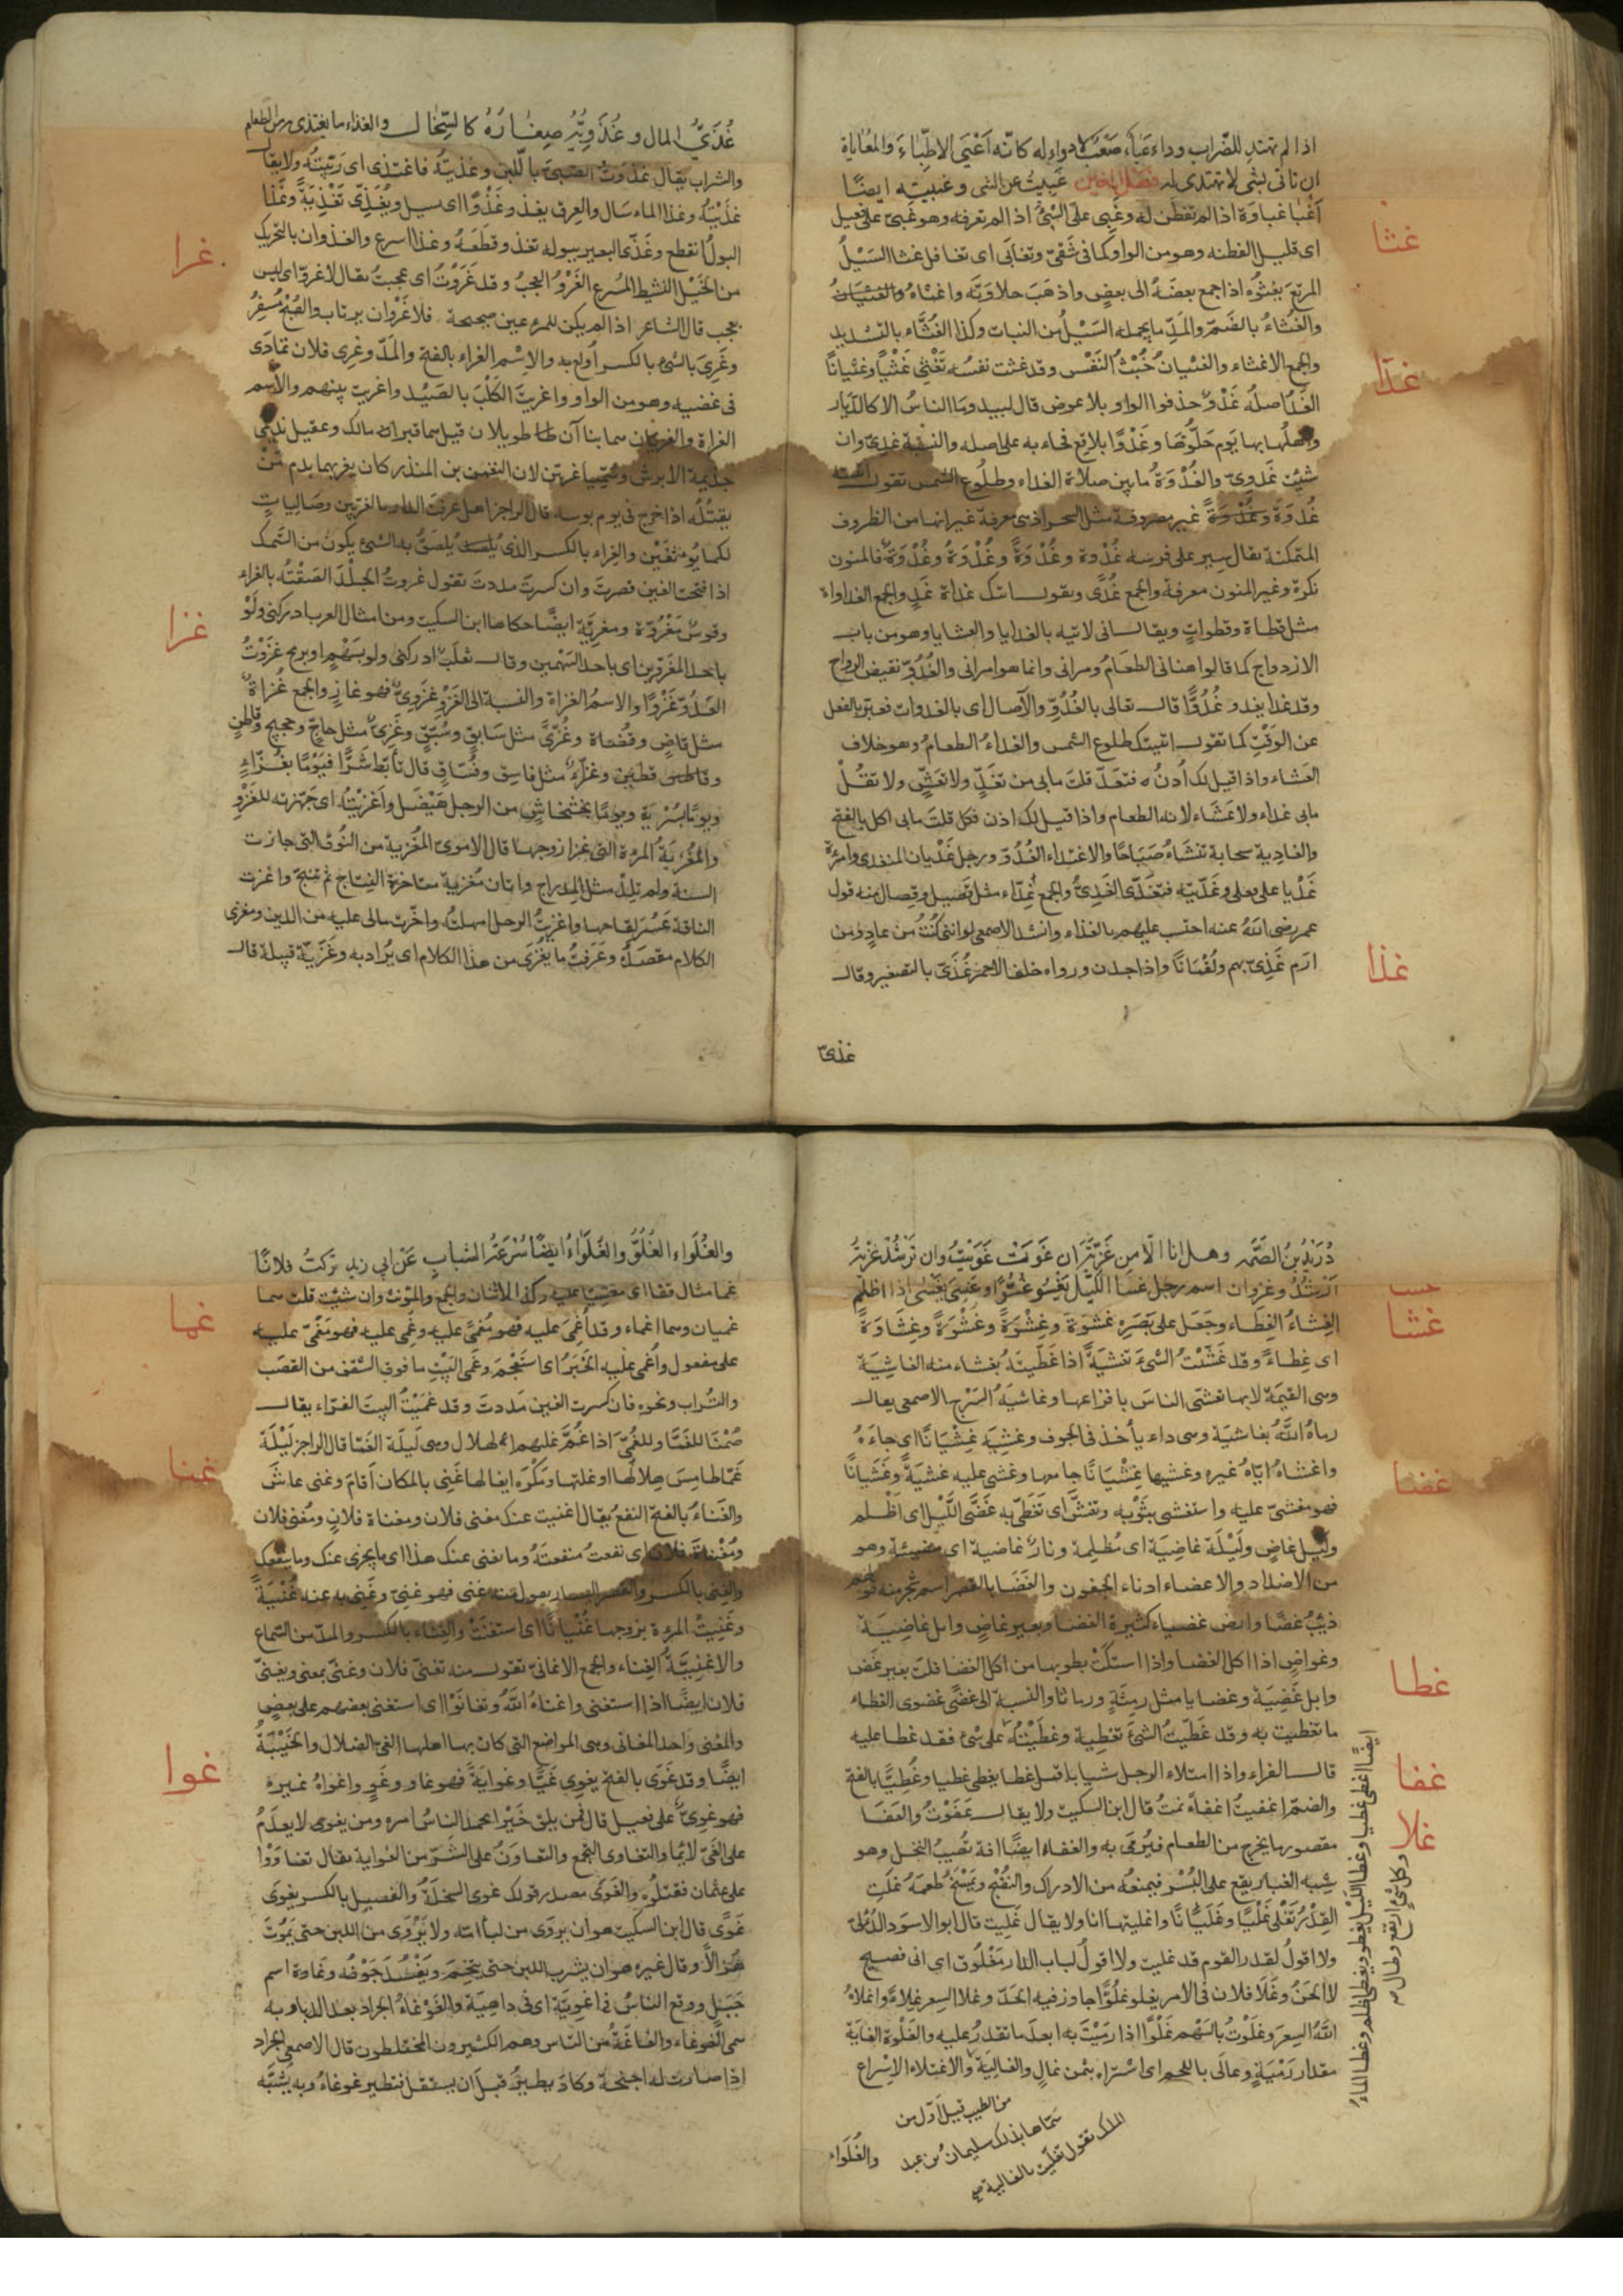 اذا لم تهتد للضراب وداء عَيَاءٌ صَعْبٌ لا دواء له كانّه اَعْيَى الاطِبّاءَ والمُعَاياةُ
ان تاتى بشى لا تهتدى له فصل الغين غَبِيتُ عن الشى وغبيته ايضًا
اَغْبَا غباوة اذا لم تفطن له وغَبِى علىّ الشئُ اذا لم تعرفه وهو غبىّ على فعيل
اى قليل الفطنه وهو من الواو كما فى شَقىّ وتغابَى اى تغافل غثا السَيْلُ
غثا
المرتعَ يغثُوه اذا جمع بعضَهُ الى بعضٍ واذهَبَ حلاوَتَه واغثاهُ
والغُثاءُ بالضمّ والمَدّ ما يحمله السَيْلُ من النبات وكذا الغُثَّاء بالتشديد
والجمع الاغثاء والغثيانُ خُبْثُ النَفْس وقد غثت نفسُه تَغْثِى غَثْيًا وغثيانًا
غدا
الغَدُ اصلُه غَدْوٌ حذفوا الواو بلا عوض قال لبيد وما الناسُ الا كالدّيار
واهلُها بها يَوم حَلُّوهَا وغَدْوًا بلاقع فجاء به على اصله والنسْبة غدىّ وان
شئت غَدوىّ والغُدْوَةُ ما بين صلاة الغداء وطلُوع الشمس تقول اتيته
غُدوَةَ غير مصروفة مثل سَحَر اذ هى معرفة غير انها من الظروف
المتمكنة يقال سير على فرسه غُدْوة وغُدْوَةً وغُدْوَةُ وغُدْوَةٌ فالمنون
نكرة وغير المنون معرفة والجمع غُدًى ويقول اتيتك غداة غَدٍ والجمع الغداواة
مثل قطاة وقطواتٍ ويقال انى لاتيه بالغدايا والعشايا وهو من باب
الازدواج كما قالوا هنانى الطعَامُ ومرانى وانما هو امرانى والغُدُوّ نقيض الرواح
وقد غدا يغدو غُدُوًّا قال تعالى بالغُدُوِّ والآصال اى بالغدوات فعبّر بالفعل
عن الوَقْتِ كما تقول اتيتك طلوع الشمس والغداءُ الطعامُ وهو خلاف
العشاء واذا قيل لك اُدنُ ه فتغدّ قلتَ مابى من تغدٍّ ولا تعشٍّ ولا تقُلْ
مابى غداء ولا عَشَاء لانه الطعام واذا قيل لك اذن فكل قلتَ مابى اكل بالفتح
والغادية سحابة تنشاءُ صَبَاحًا والاغتداء الغُدُوّ ورجل غَدْيان المتغدى وامرءة
غَدْيا على فعلى وغَدّيته فتغدّى الغَذِىُّ والجمع غِذاء مثل فَصيل وفِصال منه قول
عمر رضى اللهُ عنه احتسب عليهم بالغذاء وانشد الاصمعى لو اننى كنتُ من عادٍ ومن
غذا
ارَم غَذِىّ بهم ولُقْمَانًا وذا جدن ورواه خلف الاحمر غُذَىّ بالتصغير وقال
غذىّ
غُذَىُّ المال وغُذَويُّه صِغارُهُ كالسِّخال والغذاء ما يغتذى من الطعام
والشراب يقال غذَوتُ الصبىَّ باللّبن وغذيتُه فاغتذى اى رَبّيتُه ولا يقال
غذَيْتُه وغذا الماء سَال والعِرق يغذو غَذْوًا اى يسيل ويُغَذِّى تَغْذِيَةً وغَذا
البولُ انقطع وغَذّى البعير ببوله تغذ وقَطَعَهُ وغذا اسرع والغذوان بالتحريك
غرا
من الخَيْل النشيط المُسرع الغَرْوُ العَجبُ وقد غَرَوْتُ اى عجبتُ يقال لا غروَ اى ليس
بعجب قال الشاعر اذا لم يكن للمرءِ عين صحيحة فلا غَرْوَ ان يرتاب والصُبْحُ مُسفِرُ
وغَرِىَ بالشئ بالكسر اُولع به والاِسْم الغراء بالفتح والمدّ وغَرِى فلان تمادَى
فى غضبه وهو من الواو واغريت الكَلْبَ بالصَيْد واغريت بينهم والاسم
الغراة والغريّان هما بناآن طويلان قيل هما قبر مالك وعقيل نديمى
جذيمة الابرش وسُمِّيا غريّين لان النعمن بن المنذر كان يغريهما بدم مَنْ
يقتُلُه اذا خرج فى يوم بوسه قال الراجز اهل عرفت الدار بالغريّين وصَالِياتٍ
لكما يُوثفَيْن والغِراء بالكسر الذى يُلصَقُ به الشئ يكون من السَّمك
اذا فتحت الغين قصرت وان كسرت مددت تقول غروتُ الجِلْدَ الصَقْتُه بالغراء
وقوسٌ مَغْرُوّة ومغرِيَّة ايضًا حكاها ابن السكيت ومن امثال العرب ادركنى ولَوْ
باحد المغَروّين اى باحد السَهْمين وقال ثعلبٌ ادركنى ولو بسَهْمٍ او برمح غزَوْتُ
غزا
العَدُوّ غَزْوًا والاسمُ الغزاة والنسبة الى الغَزْوِ غزَوِىٌّ فهو غازٍ والجمع غُزاةٌ
مثل قاضٍ وقضاة وغُزًّى مثل سَابقٍ وسُبّقٍ وغَزِىٌّ مثل حاجّ وحجيج وقاطنٍ
وقطينٍ وغزّاءٌ مثل فاسِق وفُسّاقٍ قال تأبّط شَرًّا فيَوْمًا بغُزّاءٍ
ويومًا بسُرْيَةٍ ويومًا بخشخاشٍ من الرجل هَيْضَل واَغزَيْتُه اى جَهّزته للغَزْوِ
والمُغْزِيَةُ المرءة التى غزا زوجها قال الاموىّ المُغْزية من النُوق التى جازت
السنة ولم تلِدْ مثل المِدراج واتان مغزية متاخرة النتاج ثم تنتج واغزت
الناقة عَسُرَ لقاحها واغزيتُ الرجل امهلتُه واخّرت مالى عليه من الدين ومغزى
الكلام مقصَدُه وعَرَفتُ ما يُغْزَى من هذا الكلام اى يُراد به وغَزِيّة قبيلة قال
دُرَيْدُ بنُ الصِّمَّه وهل انا الّا من غَزِيَّةَ اِن غوَت غَوَيْتُ وان تَرْشُدْ غزيّةُ
غشا
اَرشُدُ وغزوان اسم رجل غسَا اللَّيْلُ يَغْسُو غسُوًّا وغَسِىَ يَغْسَى اذا اظلم
الغِشاءُ الغِطَاء وجَعَل على بَصَرِهِ غشوَة وغِشْوَةً وغُشْوَةً وغِشَاوَةً
اى غِطاءً وقد غَشّيْتُ الشئَ تغشيَةً اذا غَطّيتَهُ بغشاء منه الغاشِيَة
وهى القيمَة لانها تغشى الناسَ بافزاعها وغاشيَةُ السَرْج الاصمعى يقال
رماهُ اللّهُ بغاشيَة وهى داء يأخذ فى الجوف وغَشِيَه غِشْيَانًا اى جاءَهُ
واغشاهُ ايّاهُ غيره وغشيها غِشْيَانًا جامعها وغشى عليه غشيَةً وغَشَيانًا
غضا
فهو مغشىّ عليه واستغشى بثَوْبه وتغشَّى اى تَغَطّى به غَضَّى اللَّيْلُ اى اَظْلم
ولَيْلٌ غاضٍ ولَيْلَة غاضِيَة اى مُظلِمة ونارٌ غاضية اى مضيئة وهو
من الاضداد والاعضاء ادناء الجفون والغَضَا بالقصر اسم شجر منه قولهم
ذئبُ غضًا وارض غضياء كثيرة الغضا وبعير غاضٍ وابل غاضِيَة
وغواضٍ اذا اكل الغضا واذا اشتكَتْ بطونها من اكل الغضا قلت بعير غَضٍ
غطا
وابل غَضِيَة وغضايا مثل رمِثةٍ ورماثا والنسبة الى غضًى غضوى الغطاء
ما تغطيت به وقد غَطّيتُ الشئَ تغطِية وغطَيْتُه على شئ فقد غطا عليه
قال الفراء واذا امتلاء الرجل شبابا قيل غطا يغطى غطيا وغُطِيًّا بالفتح
غفا
والضمّ اغفيتُ اغفاءً نمتُ قال ابن السكيت ولا يقال غَفَوْتُ والغَفَا
غلا
مقصور ما يخرج من الطعام فيُرمَى به والغفاء ايضًا افة تُصيبُ النخل وهو
شبه الغبار يقع على البُسْر فيمنعُه من الادراك والنُضْج ويَمْسَخُ طعمَهُ غَلَتِ
القِدْرُ تَغْلى غَلْيًا وغَلَيَانًا واغليتها انا ولا يقال غَلِيت قال ابو الاسوَد الدُئلىّ
ولا اقولُ لقدر القوم قد غليت ولا اقولُ لباب الدار مَغْلُوق اى انى فصيح
لا الحَنُ وغَلَا فلان فى الامر يغلو غُلُوًّا جاوز فيه الحَدّ وغلا السِعر غلاءً واغلاهُ
اللّهُ السِعرَ وغلَوْتُ بالسَهْم غَلْوًا اذا رَمَيْتَ به ابعدَ ما تقدرُ عليه والغَلْوة الغايَة
مقدار رَمْيَةٍ وغالَى باللحم اى اشتراه بثمن غالٍ والغالِيَة والاغتلاء الاِسْراع
من الطيب قيل اَوّل من
سَمّاها بذلك سليمانُ بن عبد
الملك تقول تغلّيت بالغالية صح
والغُلَواء
ايضًا اغطى غطيا وغطا الليل يغطو ويغطى اظلم وغطا الماءُ
وكل شئٍ ارتفع وطال
والغُلَواء الغُلُوّ والغُلَواءُ ايضًا سُرْعَةُ الشباب عَنْ ابى زيد تركتُ فلانًا
غما
غما مثال قفا اى مغشيا عليه وكذا الاثنان والجمع والمؤنث وان شئت قلت هما
غميان وهم اغماء وقد اُغْمِىَ عليه فهو مُغْمًى عليه وغُمى عليه فهو مَغْمىّ عليه
على مفعول واُغْمى عليه الخَبَرُ اى استَعْجَمَ وغَمَى البَيْتِ ما فوق السَّقف من القصَب
والتُراب ونحوه فان كسرت الغين مَددتَ وقد غَمَيْتُ البيتَ الفرّاء يقال
صُمْنا للغَمَّا وللغُمّى اذا غُمَّ عليهم الهلال وهى لَيلَة الغَمّا قال الراجز لَيْلَة
غنا
غَمّا طامِسَ هِلالُها اوغلتها ومَكْرَه ايغالها غَنِى بالمكان اَقامَ وغنى عاشَ
والغَناءُ بالفتح النفع يقال اغنيت عنك مغنى فلان ومغناة فلانٍ ومُغنى فلان
ومُغْناةَ فلان اى نفعتُ منفعتَهُ وما يغنى عنك هذا اى ما يجزى عنك وما ينفعك
والغِنَى بالكسر والقصر اليسار يقول منه غنى فهو غنىّ وغَنِى به عنه غُنْيَةً
وغَنِيَتْ المرءة بزوجها غُنْيانًا اى استغنَتْ والغِناء بالكسر والمدّ من السَّماع
والاغنِيَّةُ الغِناء والجمع الاغانىّ تقول منه تغنّى فلان وغنّى بمعنى ويغنىّ
فلان ايضًا اذا استغنى واغناهُ اللّهُ وتغانَوْا اى استغنى بعضهم على بعضٍ
غوا
والمغنى واحد المغانى وهى المواضع التى كان بها اهلها الغىّ الضلال والخَيْبَةُ
ايضًا وقد غوَى بالفتح يغوِى غَيًّا وغوايةً فهو غاوٍ وغَوٍ واغواهُ غيره
فهو غوِىٌّ على فعيل قال فمن يلق خَيْرًا يحمد الناسُ امره ومن يغو لا يعدَمُ
على الغَىّ لائمًا والتغاوى التجمع والتعاوُنُ على الشرّ من الغواية يقال تغاوَوْا
على عثمان فقتلُوه والغَوَى مصدر قولك غوى السخلَةُ والفصيل بالكسر يغوَى
غَوًى قال ابن السكيت هو اَن يروَى من لبأ امّه ولا يَرْوَى من اللبن حتى يَمُوتَ
هُزالًا وقال غيره هو ان يشرب اللبن حتى يتخِمَ ويَفْسُدَ جَوْفُه وغاوة اسم
جَبَلٍ ووقع الناسُ فى اُغوِيَّة اى فى داهِيَة والغَوْغاءُ الجراد بعد الدبا وبه
سمى الغوغاء والغاغَةُ من النّاس وهم الكثيرون المختلطون قال الاصمعى الجراد
اذا صارت له اجنحة وكادَ يطيرُ قبلَ اَن يستقل فتطير غوغاءُ وبه يُشَبَّه